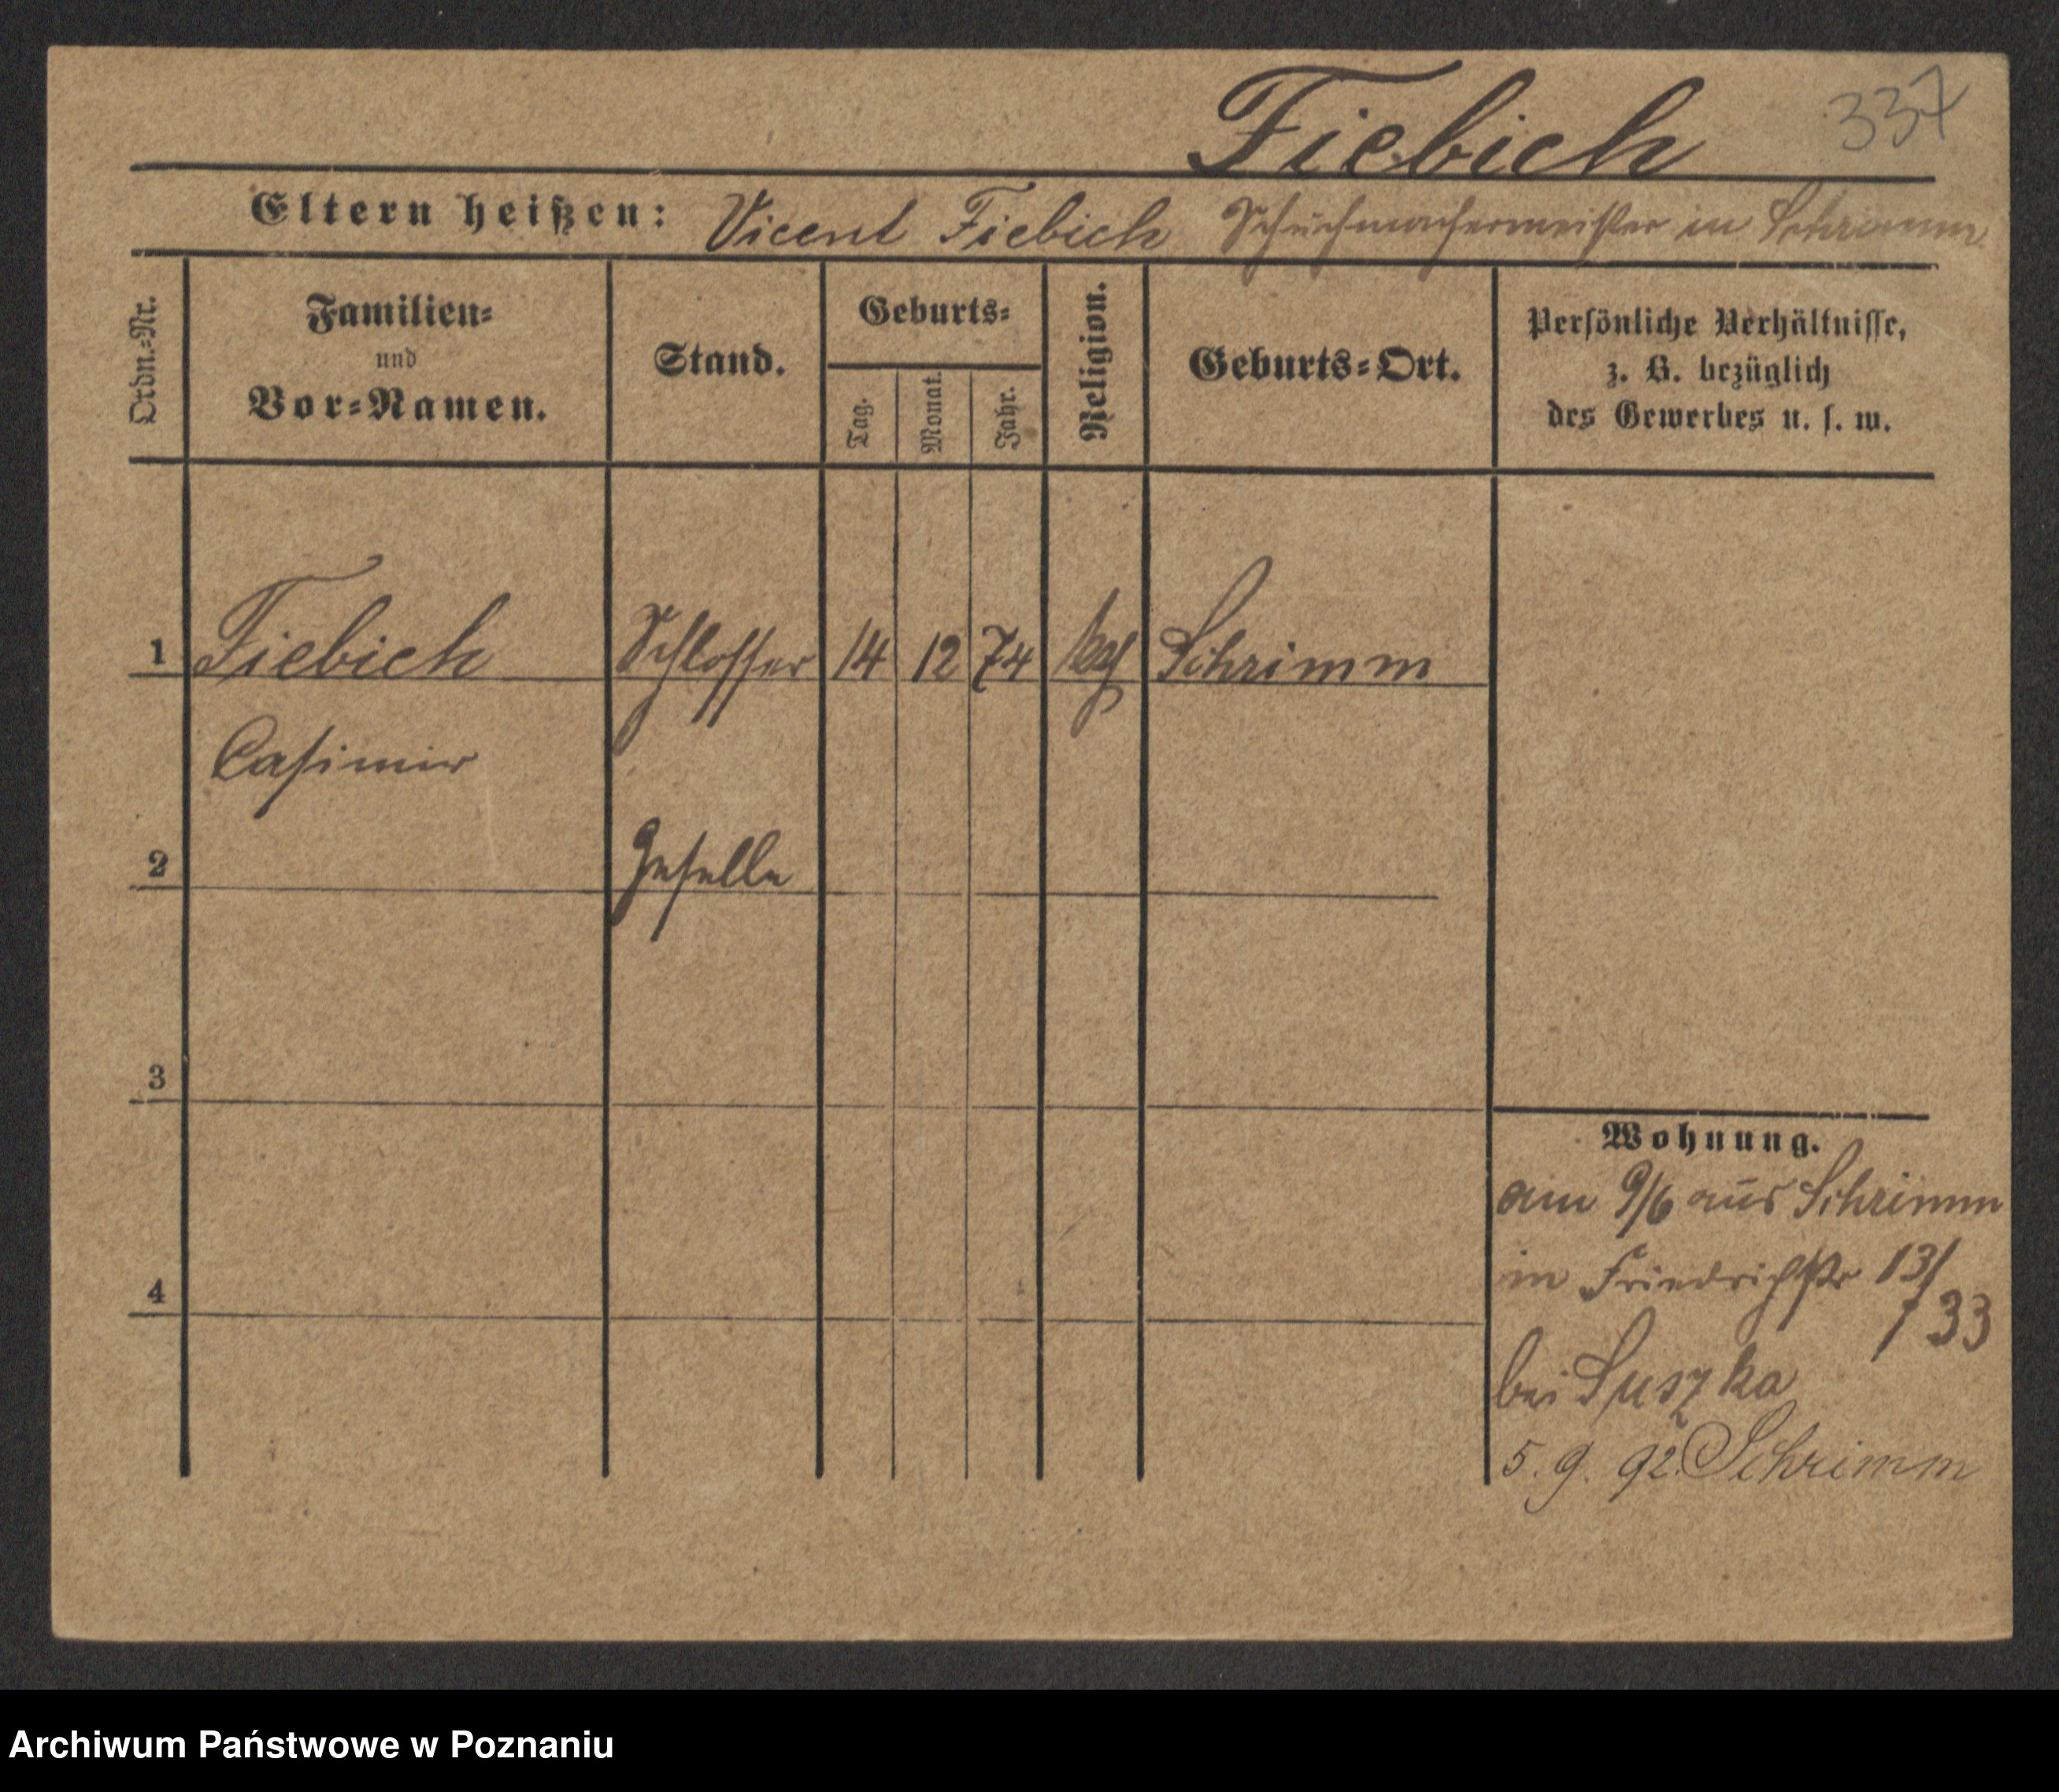 337
Fiebich
Eltern heißen: Vicent Fiebich Schuhmachermeister in Schrimm
Ordn.-Nr.
Familien-
und
Vor-Namen.
Stand.
Geburts-
Tag.
Monat.
Jahr.
Religion.
Geburts-Ort.
Persönliche Verhältnisse,
z. B. bezüglich
des Gewerbes u. s. w.
1 Fiebich Schlosser 14 12 74 Schrimm
Casimir
2 Geselle
3
4
Wohnung.
am 9/6 aus Schrimm
in Friedrichstr 13/
/33
bei Suszka
5. 9. 92. Schrimm
Archiwum Państwowe w Poznaniu